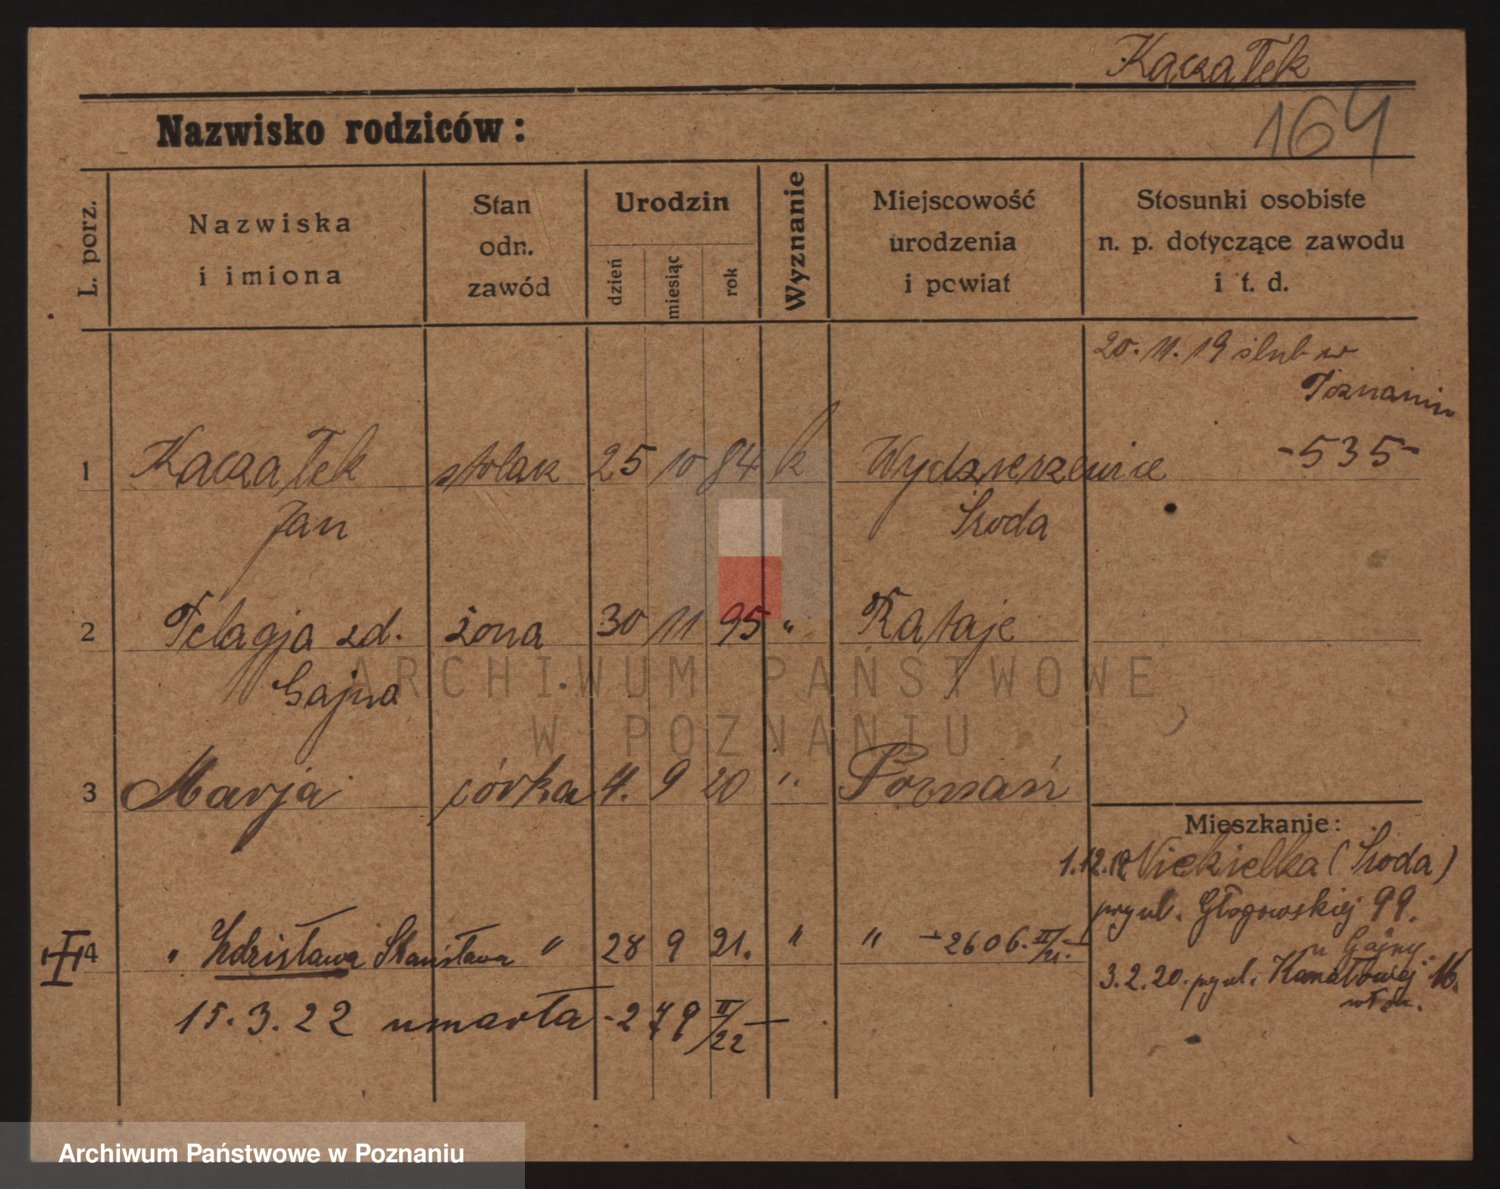 Kaczałek
164
Nazwisko rodziców:
L. porz.
Nazwiska
i imiona
Stan
odn.
zawód
Urodzin
dzień
miesiąc
rok
Wyznanie
Miejscowość
urodzenia
i powiat
Stosunki osobiste
n. p. dotyczące zawodu
i t. d.
20. 11. 19 ślub w
Poznaniu
-535-
1 Kaczałek stolarz 25 10 84 k Wydzierzewice
Jan Środa
2 Pelagja zd. żona 30 11 95 " Rataje
Gajna
3 Marja córka 4. 9 20 " Poznań
Mieszkanie:
1.12.19 Niekielka (Środa)
przy ul. Głogowskiej 99.
u Gajny.
3.2.20. przy ul. Kanałowej 16.
4 " Zdzisława Stanisława " 28 9 21. " " -2606. II/21.-
15.3.22 umarła -279 II/22-
ARCHIWUM PAŃSTWOWE
W POZNANIU
Archiwum Państwowe w Poznaniu